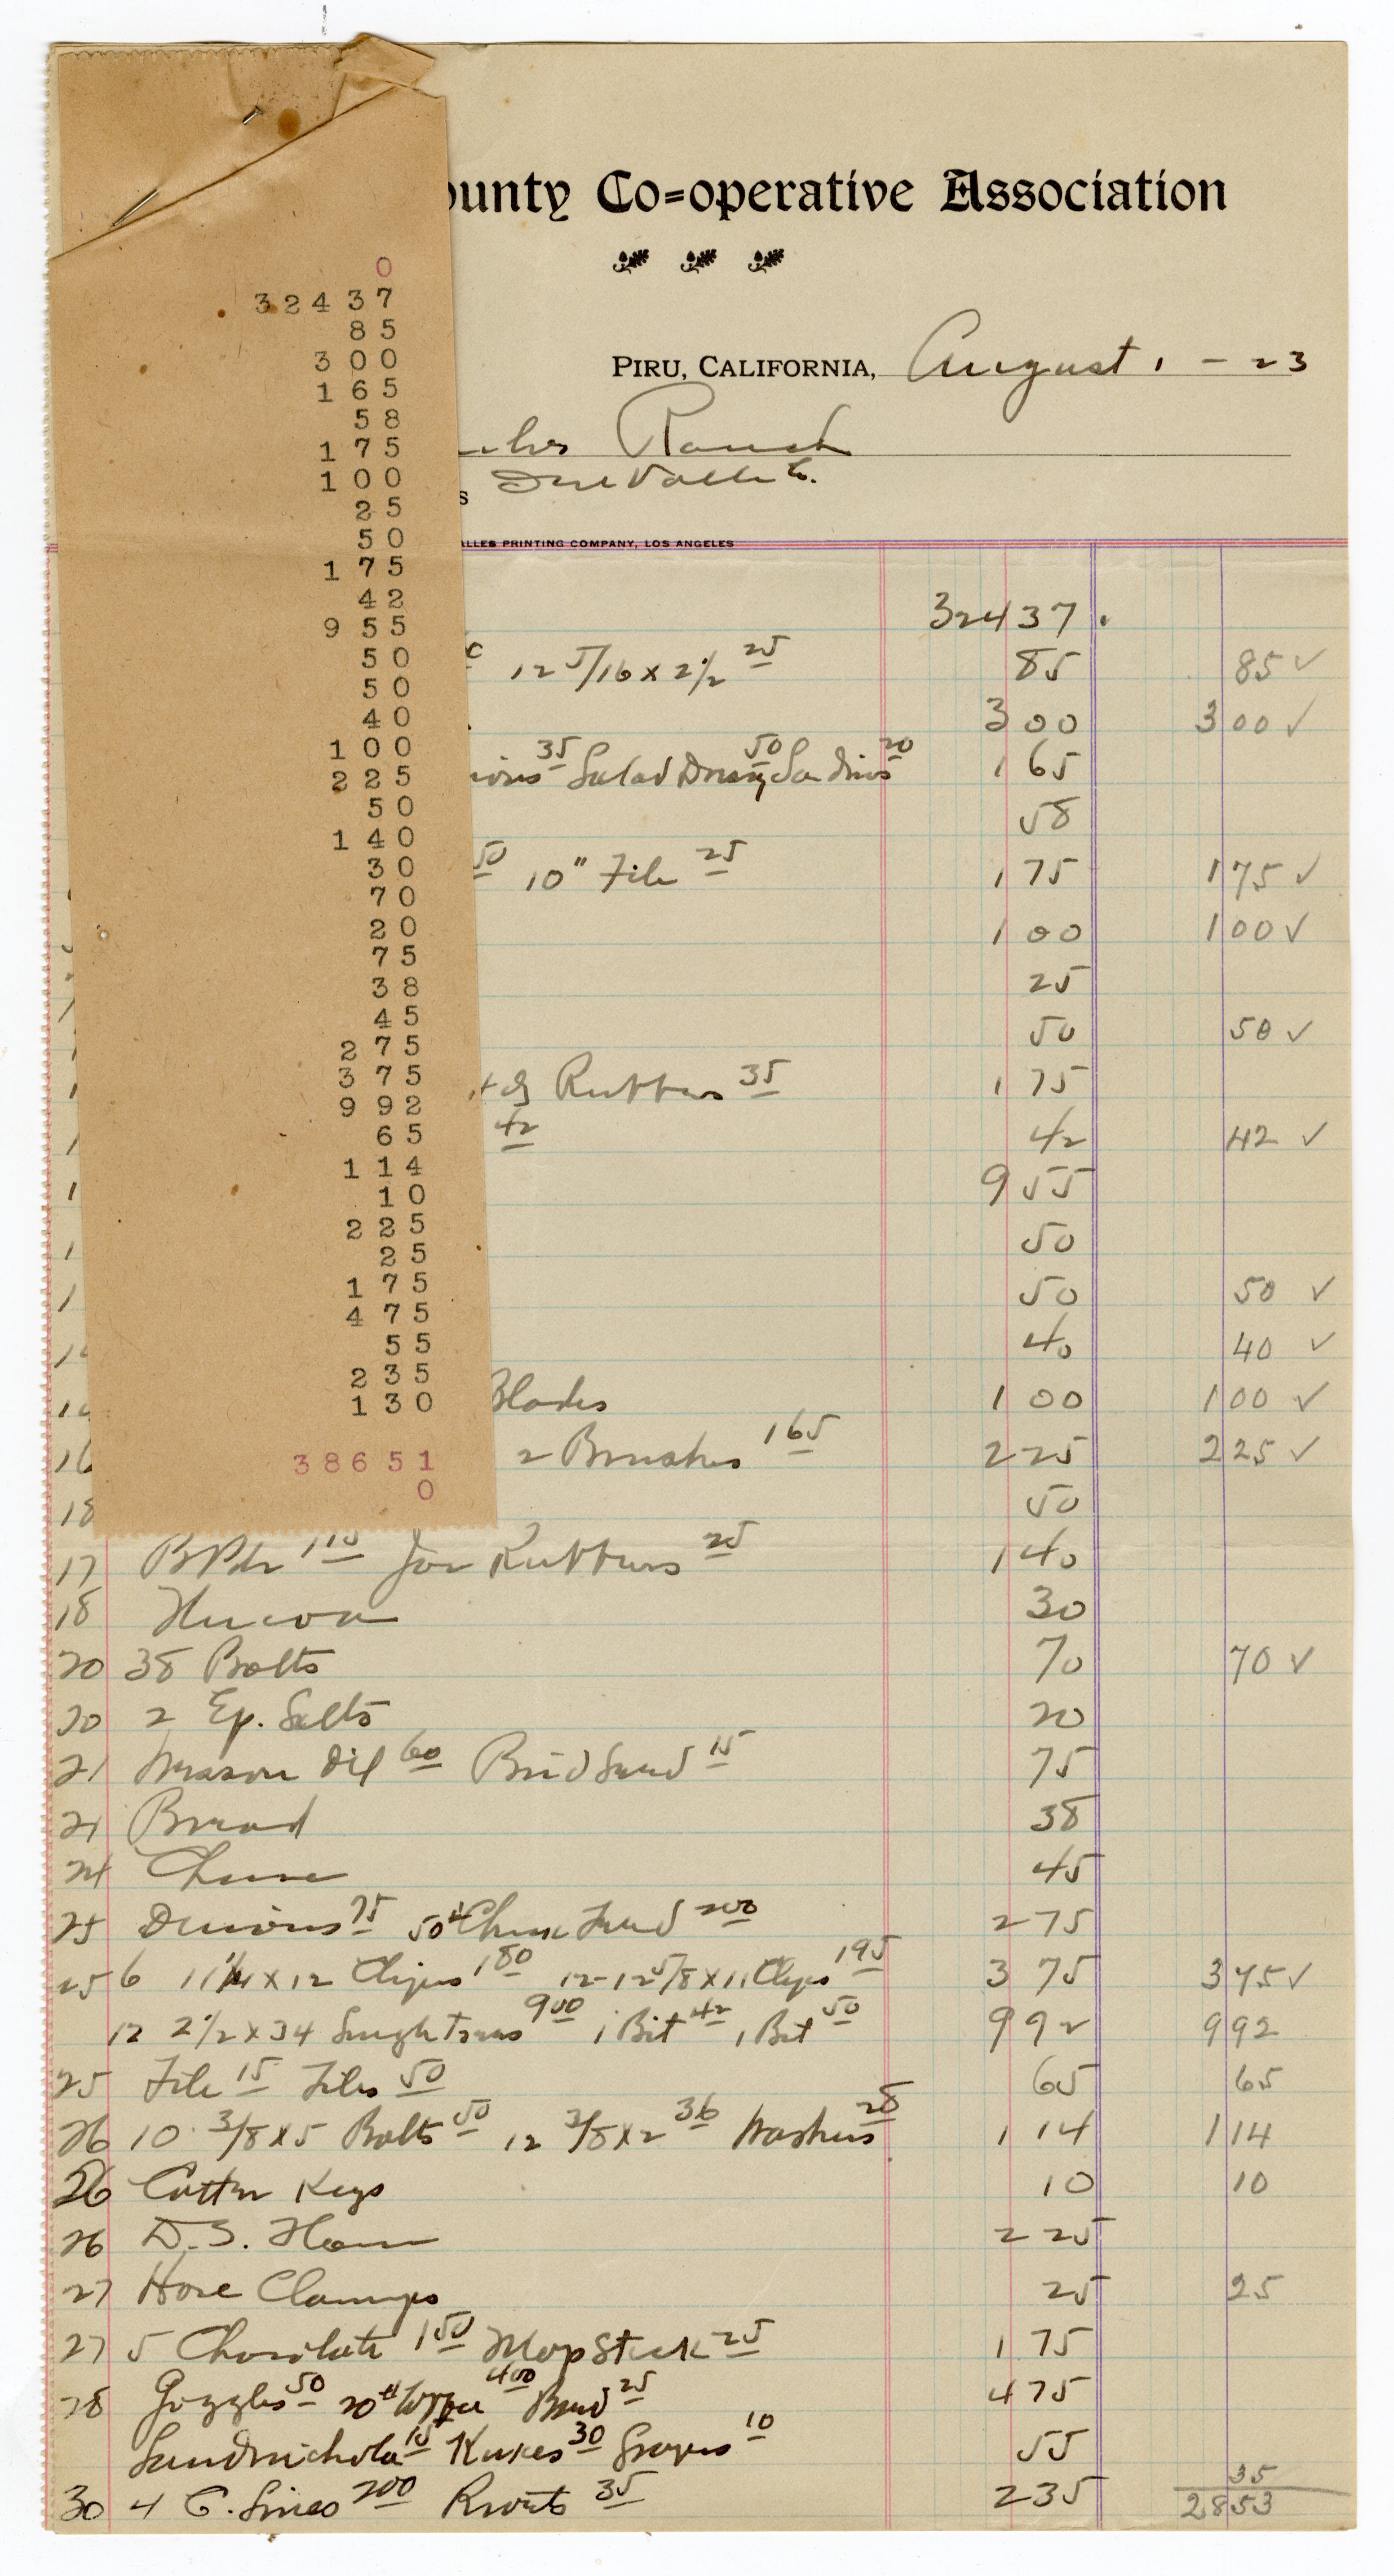 0
32437
85
300
165
58
175
100
25
50
175
42
955
50
50
40
100
225
50
140
30
70
20
75
38
45
275
375
992
65
114
10
225
25
175
475
55
235
130
38651
0
ounty Co=operative Association
PIRU, CALIFORNIA, August 1 - 23
Ranch
Del Valle Co.
ALLES PRINTING COMPANY, LOS ANGELES
32437.
12 5/16 x 2 1/2 25 85 85 ✓
3 00 3 00 ✓
35 Salad Dressg 50 Sardines 20 1 65
58
50 10" File 25 1 75 1 75 ✓
1 00 1 00 ✓
25
50 50 ✓
Rubbers 35 1 75
42 42 42 ✓
9 55
50
50 50 ✓
40 40 ✓
Blades 1 00 1 00 ✓
16 2 Brushes 165 2 25 2 25 ✓
18 50
17 B Pdr 115 Jar Rubbers 25 1 40
18 Nucoa 30
20 38 Bolts 70 70 ✓
20 2 Ep. Salts 20
21 Mason Oil 60 Bird Seed 15 75
21 Bread 38
24 Cheese 45
25 Onions 75 50# Chick Feed 200 2 75
25 6 11 1/4 x 12 Clips 180 12-12 5/8 x 11 Clips 195 3 75 3 75 ✓
12 2 1/2 x 34 Singletrees 900 1 Bit 42 1 Bit 50 9 92 9 92
25 File 15 Files 50 65 65
26 10 3/8 x 5 Bolts 50 12 3/8 x 2 36 Washers 28 1 14 1 14
26 Cotter Keys 10 10
26 D.S. Ham 2 25
27 Hose Clamps 25 25
27 5 Chocolate 150 Mop Stick 25 1 75
28 Goggles 50 20# Coffee 400 Bread 25 4 75
Sandwichola 15 Kukes 30 Grapes 10 55
30 4 C. Lines 200 Rivets 35 2 35 35
2853